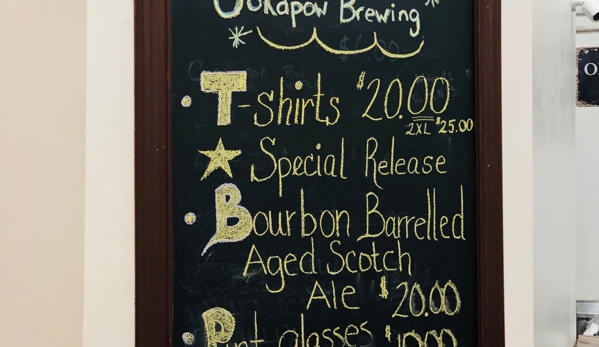 Ookapow Brewing
T-shirts $20.00
2XL $25.00
Special Release
Bourbon Barrelled
Aged Scotch
Ale $20.00
Pint glasses $10.00